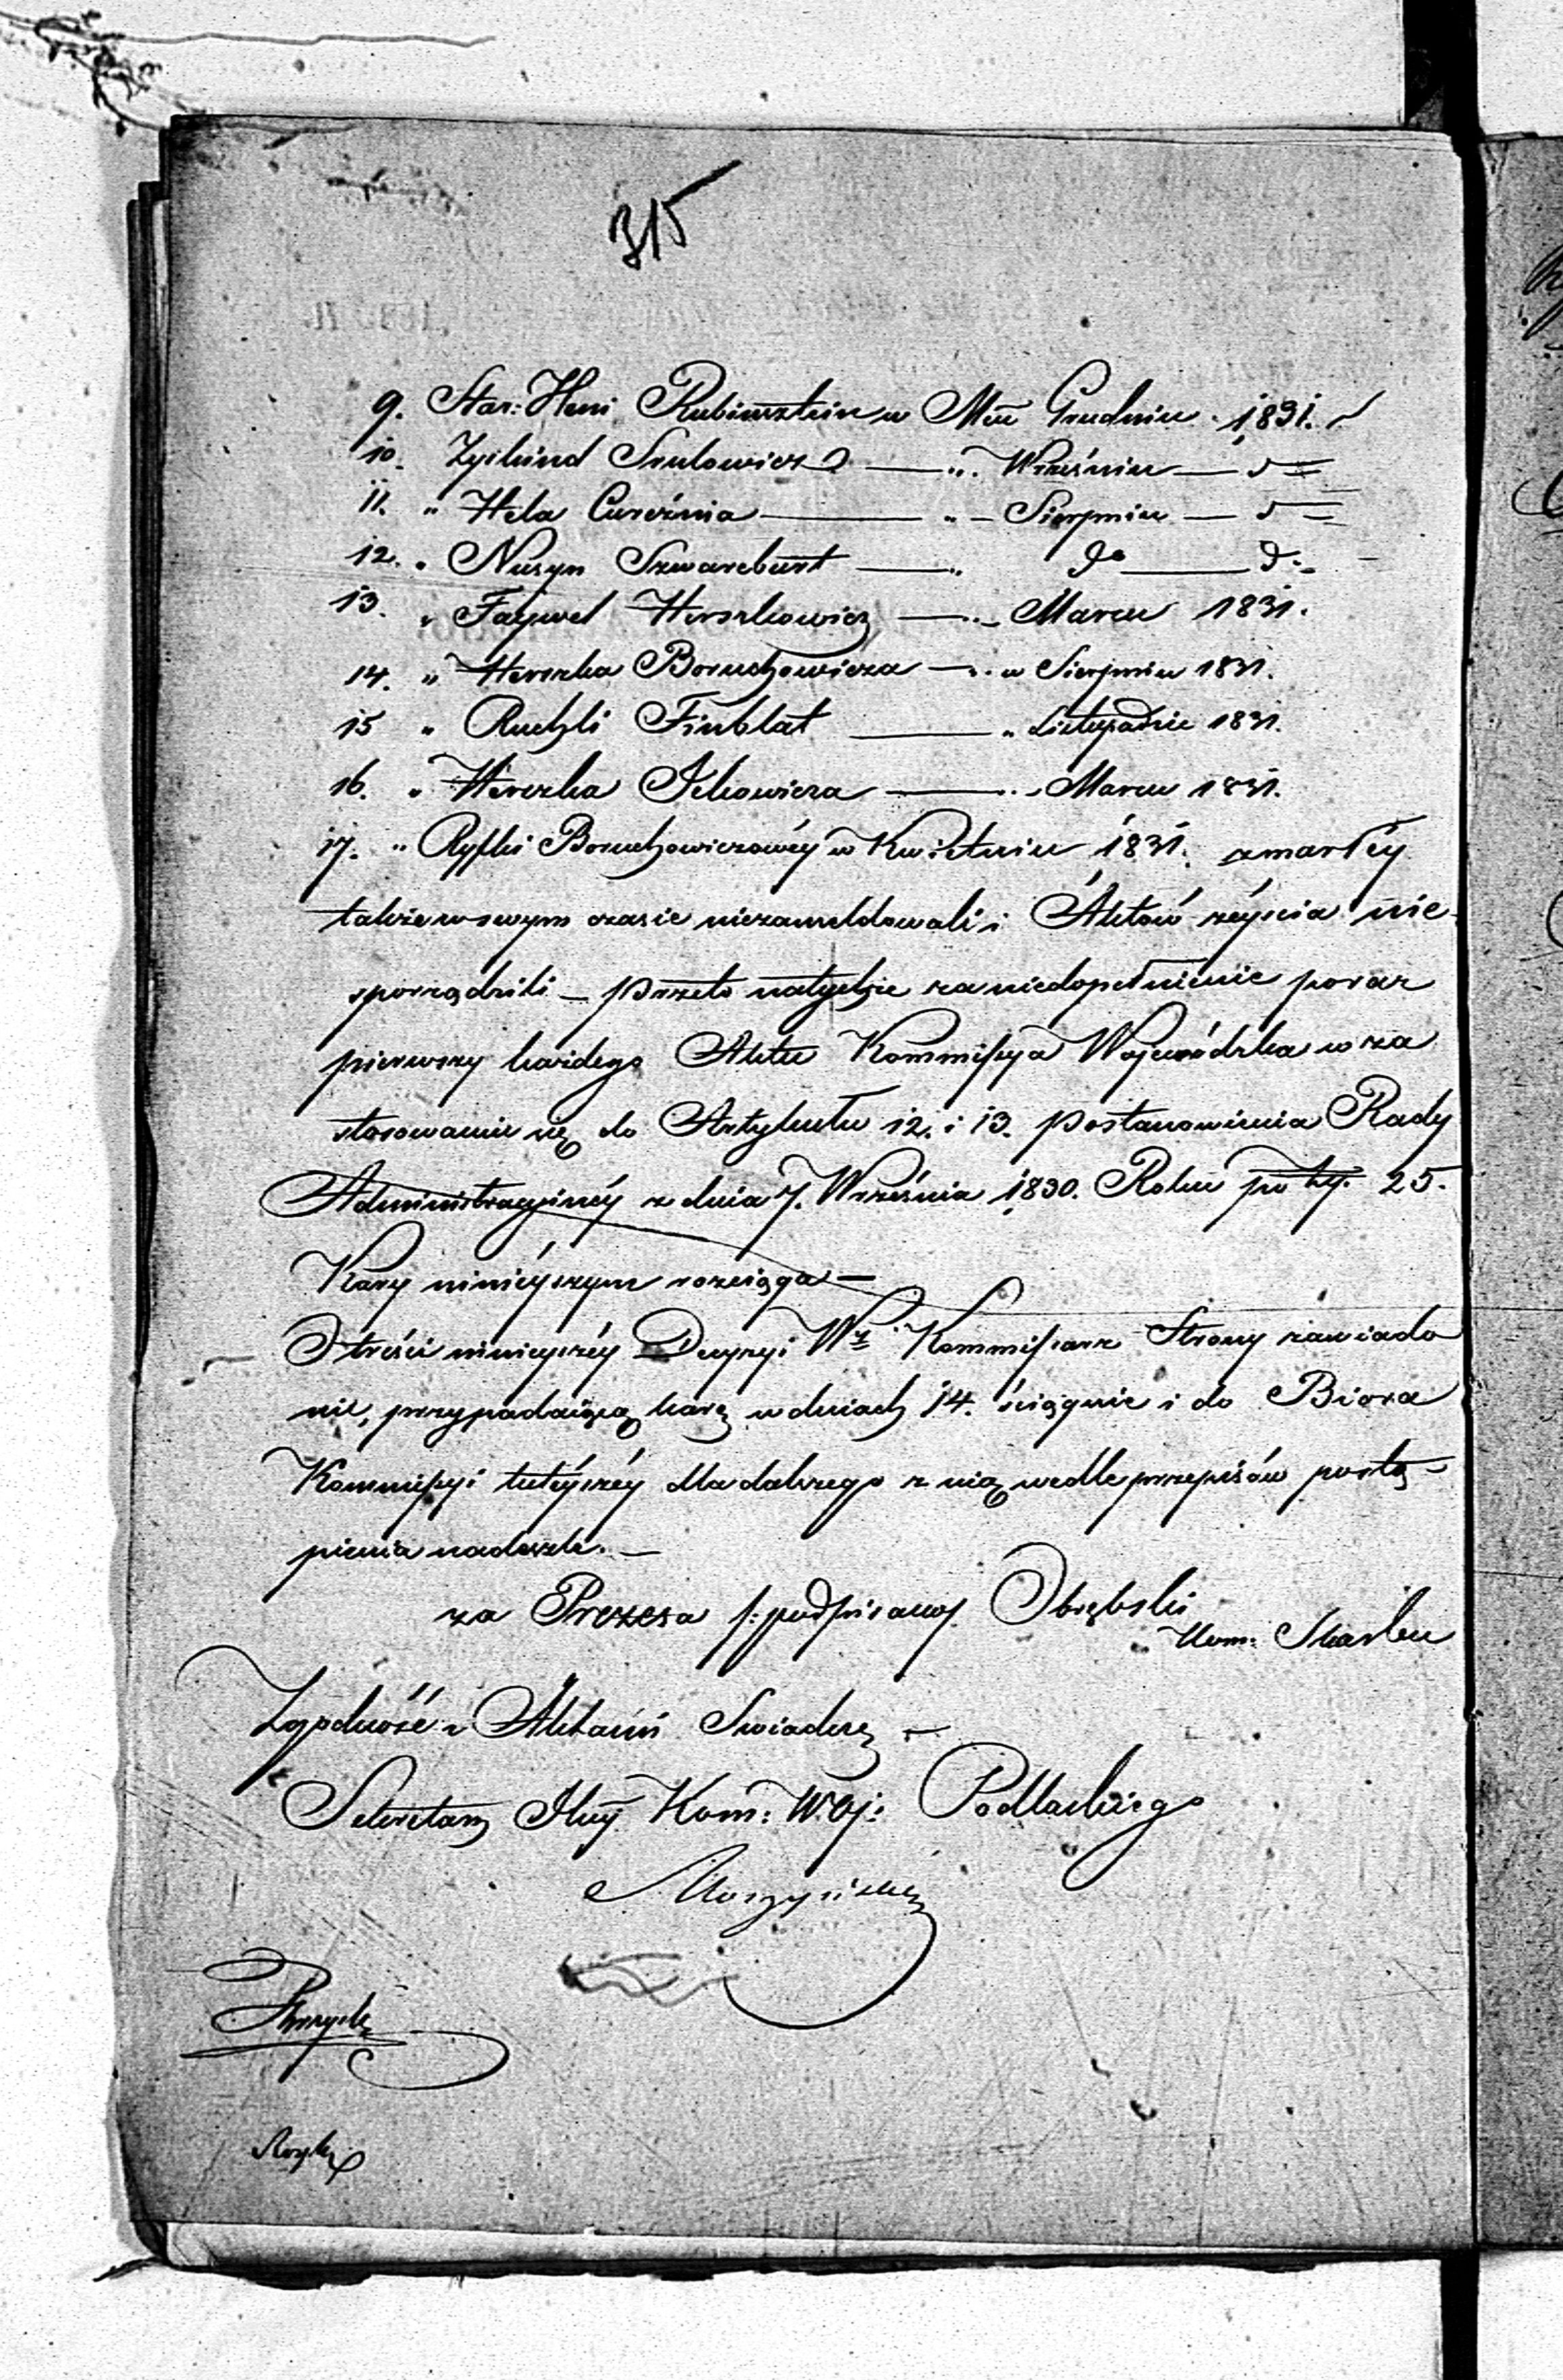 315
9. Star: Heni Rubinsztein w Mcu Grudniu 1831.
10. Zyskind Srulowicz — „. Wrześniu — d =
11. „ Hela Curcżnia — „ — Sierpniu — d =
12. „ Nusyn Szwarcburt — „ do — d.
13. „ Faywel Herszkowicz — „ Marcu 1831.
14. „ Herszka Boruchowicza — „ w Sierpniu 1831.
15 „ Ruchli Finblat — „ Listopadzie 1831.
16. „ Herszka Ickowicza — „ Marcu 1831.
17. „ Ryfki Boruchowiczowéy w Kwietniu 1831. zmarłéy
także w swym czasie niezameldowali i Aktów zéyscia nie
sporządzili — przeto natychże za niedopełnienie poraz
pierwszy każdego Aktu Kommissya Wojewódzka w za
stosowaniu się do Artykułu 12. i 13. postanowienia Rady
Administracyinéy z dnia 7. Września 1830. Roku po 25.
Kary ninieyszym rozciąga —
O treści ninieyszéy Decyzyi Wy Kommissarz Strony zawiado
mi, przypadaiącą karę w dniach 14. ściągnie i do Biora
Kommissyi tutéyszéy dla dalszego z nią wedle przepisów postę-
pienia nadeszle. —
za Prezesa /:podpisano/ Obrębski
Kom: Skarbu
Zgodność z Aktami Swiadczę
Sekretarz Jlny Kom: Woj: Podlaskiego